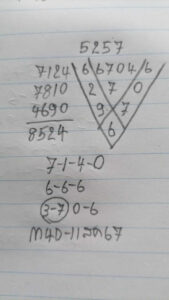 5257
7124 6 6704 6
7810 2 7 0
4690 9 7
8524 6
7-1-4-0
6-6-6
3-7 0-6